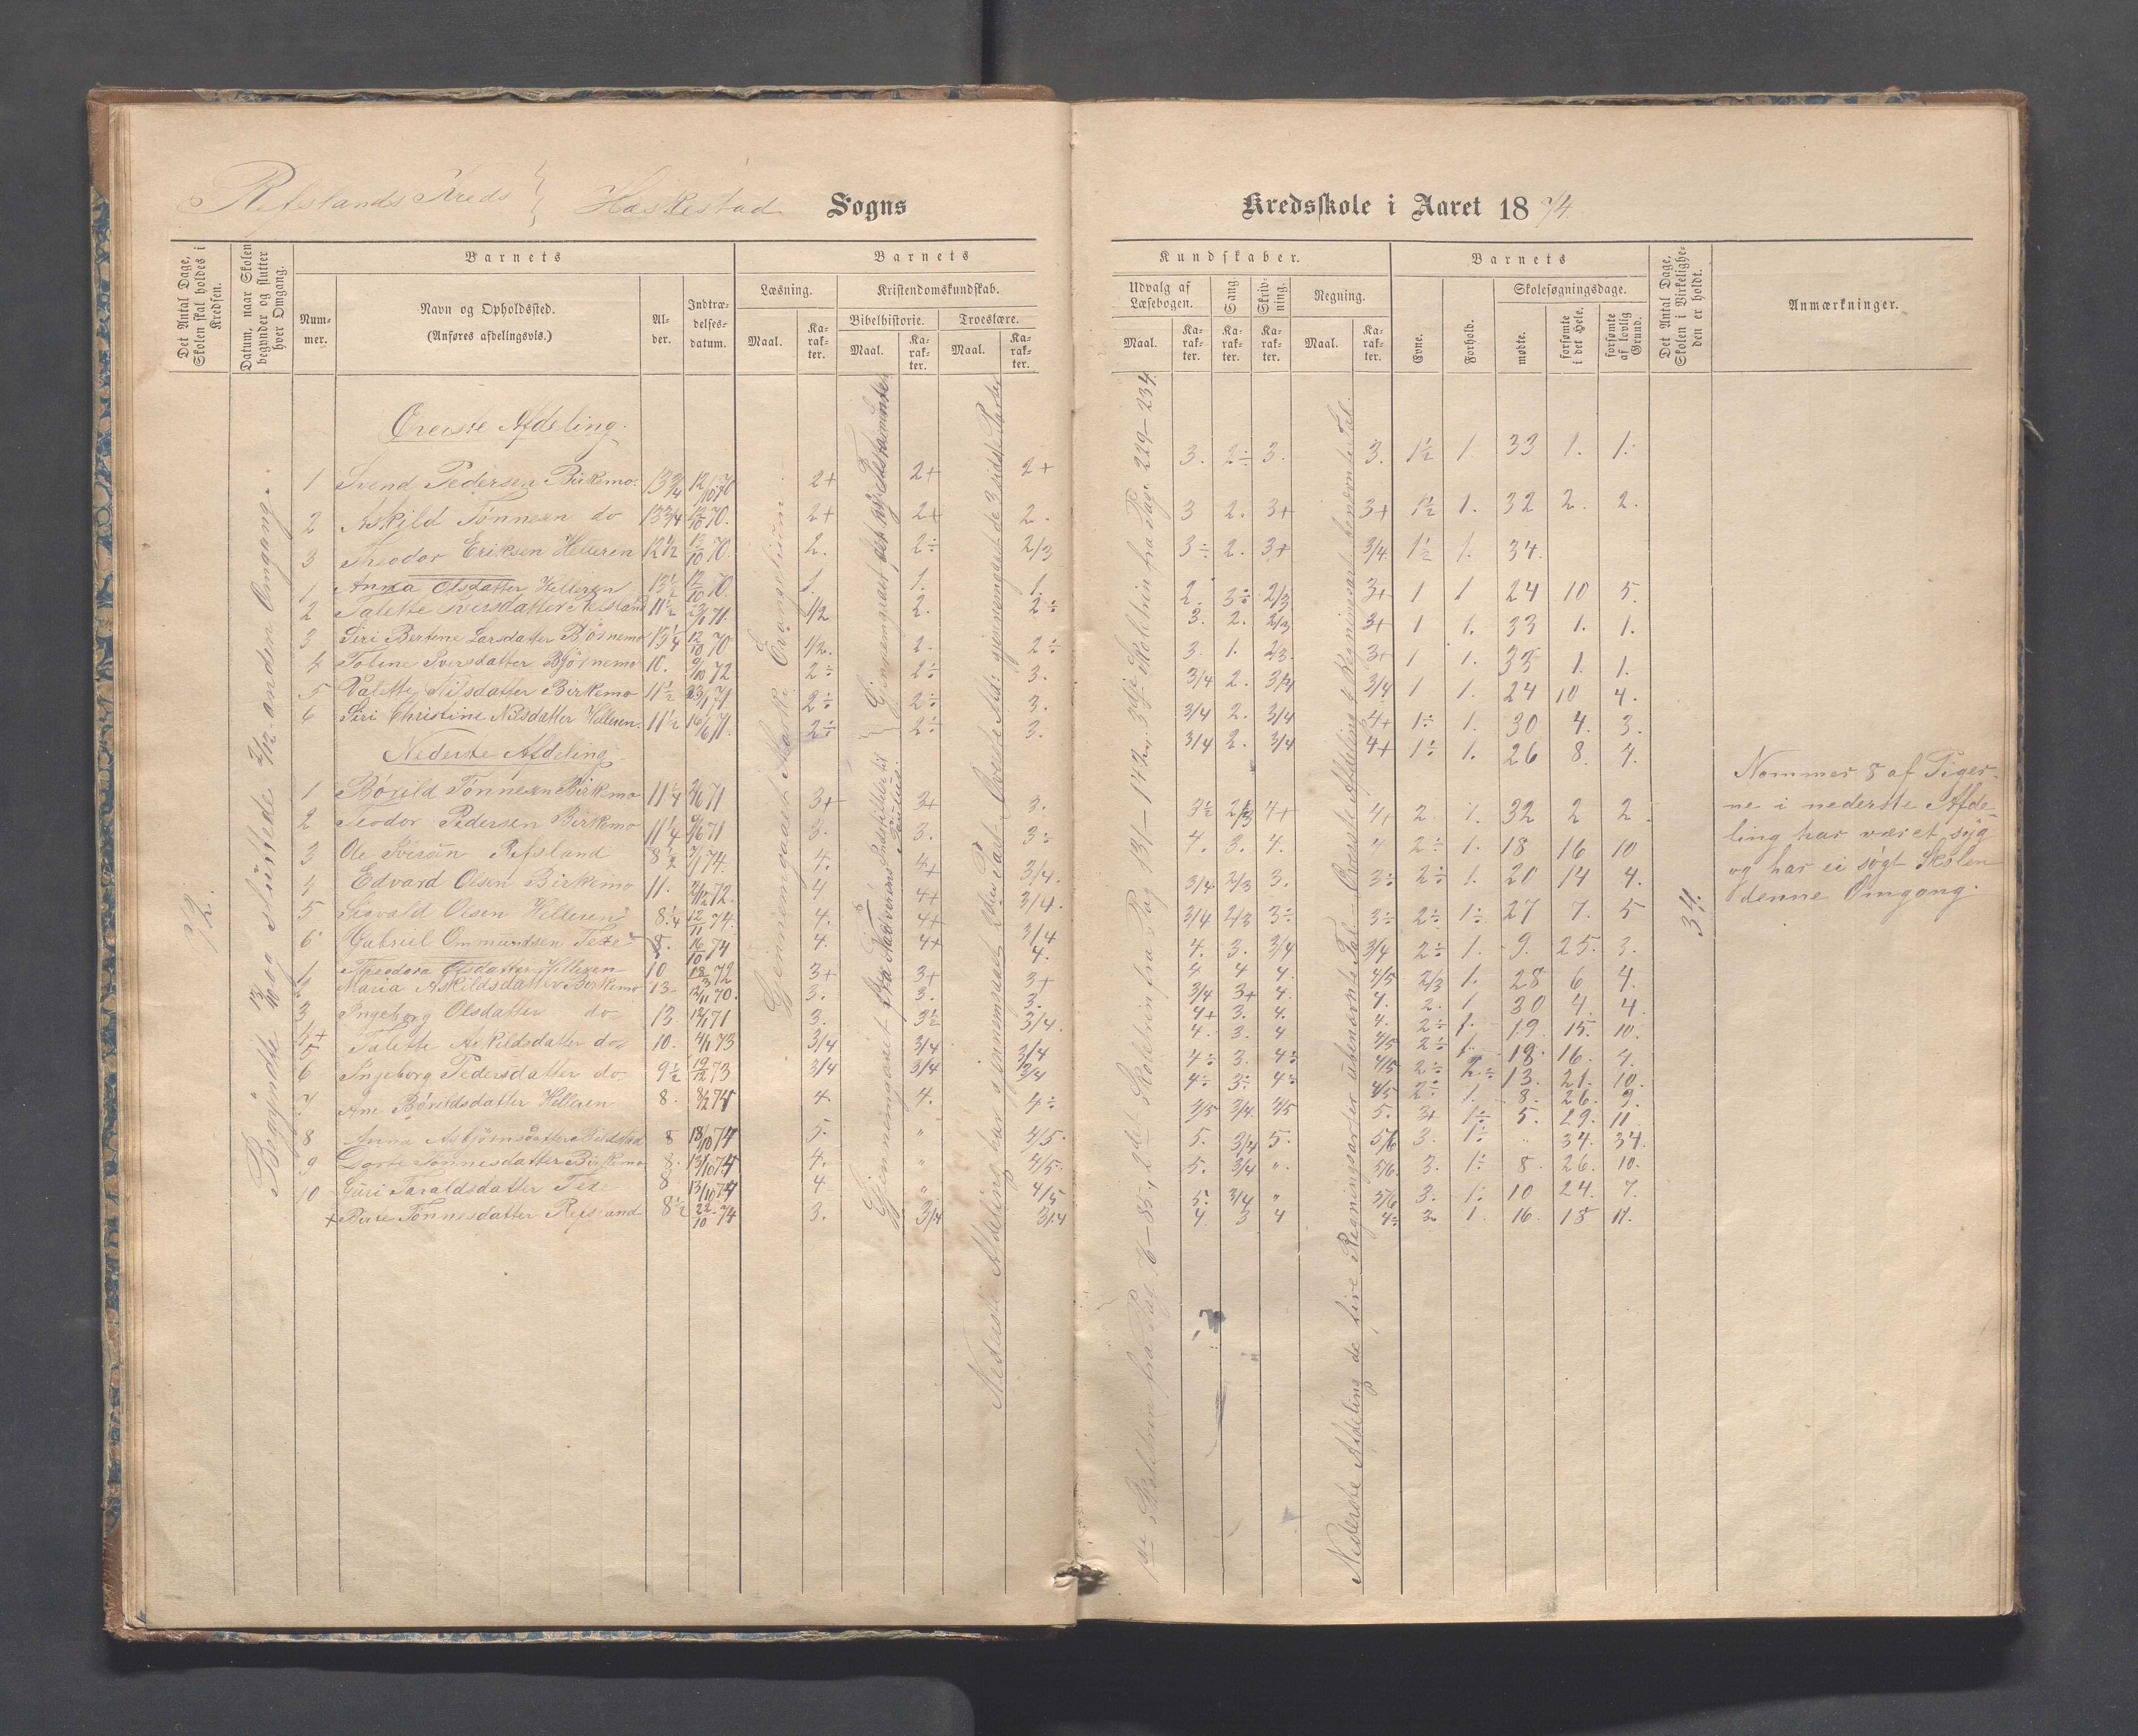 Refslands Kreds } Heskestad Sogns Kredsskole i Aaret 1874.
Det Antal Dage, Skolen skal holdes i Kredsen.
Datum, naar Skolen begynder og slutter hver Omgang.
Barnets
Nummer.
Navn og Opholdssted.
(Anføres afdelingsvis.)
Alder.
Indtrædelsesdatum.
Barnets
Læsning.
Kristendomskundskab.
Bibelhistorie.
Troeslære.
Maal.
Karakter.
Maal.
Karakter.
Maal.
Karakter.
Kundskaber.
Udvalg af Læsebogen.
Sang.
Skrivning.
Regning.
Maal.
Karakter.
Karakter.
Karakter.
Maal.
Karakter.
Barnets
Evne.
Forhold.
Skolesøgningsdage.
mødte.
forsømte i det Hele.
forsømte af lovlig Grund.
Det Antal Dage, Skolen i Virkeligheden er holdt.
Anmærkninger.
Begyndte 13/10 og sluttede 2/12 anden Omgang.
Gjennemgaaet Marki Evangelium
Øverste Afdeling.
1 Svend Pedersen Birkemo. 13 3/4 12/10 70 2+ 2+ 2+ 3. 2÷ 3. 3. 1½ 1. 33 1. 1.
2 Askild Tønnesen do 13 3/4 12/10 70. 2+ 2+ 2. 3 2. 3+ 3+ 1½ 1. 32 2. 2.
3 Theodor Eriksen Helleren 12½ 13/10 70. 2. 2÷ 2/3 3÷ 2. 3+ 3/4 1½ 1. 34.
1 Anna Olsdatter Helleren 13½ 12/10 70. 1. 1. 1. 2. 3÷ 2/3 3+ 1 1 24 10 5.
2 Talette Iversdatter Refsland 11½ 23/1 71. 1/2 2. 2÷ 3. 2. 2/3 3+ 1 1. 33 1. 1.
3 Siri Bertine Larsdatter Bjørnemo 13¼ 12/10 70 1/2. 2. 2÷ 3. 1. 2/3. 3+ 1 1. 33 1. 1.
4 Tobine Iversdatter Bjørnemo 10. 9/10 72 2÷ 2÷ 3. 3/4 2. 3/4 3/4 1 1. 24 10 4.
5 Valette Nilsdatter Birkemo 11½ 23/1 71 2÷ 2÷ 3. 3/4 2. 3/4 4+ 1÷ 1. 30 4. 3.
6 Siri Christine Nilsdatter Helleren. 11½ 16/6 71. 2÷ 2÷ 3. 3/4 2. 3/4 4+ 1÷ 1. 26 8. 4.
Nederste Afdeling
1 Børild Tønnesen Birkemo 11¼ 2/6 71 3+ 3+ 3. 3½ 2/3 4+ 4+ 2. 1. 32 2 2.
2 Teodor Pedersen Birkemo 11¼ 9/6 71 3. 3. 3÷ 4. 3. 4. 4 2÷ 1. 18 16 10
3 Ole Refsland 8½ 7/1 74. 4. 4+ 3/4. 3/4 2/3 3. 3÷ 2÷ 1. 20 14 4.
4 Edvard Olsen Birkemo 11. 2/12 72. 4 4+ 3/4. 3/4 2/3 3÷ 3÷ 2÷ 1÷ 27 7. 5
5 Sigvald Olsen Helleren 8¼ 12/11 74. 4. 4+ 3/4 4. 3. 3/4 3/4 2÷ 1. 9. 25. 3.
6 Gabriel Ommundsen 8. 16/10 74 4. 4+ 4. 4 4 4. 4/5 2/3 1. 28 6 4.
1 Theodora Olsdatter Helleren 10 18/3 72 3+ 3+ 3+ 3/4 3+ 4. 4. 2. 1 30 4. 4
2 Maria Askildsdatter Birkemo 13. 12/11 70. 3. 3. 3. 4+ 3. 4. 4. 2÷ 1. 19 15. 10.
3 Ingeborg Olsdatter do 13. 12/1 71 3. 3½ 3/4. 4. 3. 4 4/5 2÷ 1. 18. 16. 4.
5 Talette Askildsdatter do 10. 4/1 73 3/4 3/4 3/4 4÷ 3. 4÷ 4/5 2÷ 2÷ 13. 21. 10.
6 Ingeborg Pedersdatter do. 9½ 19/12 73 3/4 3/4 3/4 4÷ 3÷ 4÷ 4/5 2÷ 1. 8. 26. 9.
7 Ane Børildsdatter Helleren 8. 9/2 74 4. 4. 4÷ 4/5 3/4 4/5 5. 3+ 1÷ 5. 29. 11
8 Anna Asbjørnsdatter 8 18/10 74 5. " 4/5. 5. 3/4 5. 5/6 3. 1÷ " 34. 34.
9 Dorte Tønnesdatter Birkemo 8. 13/10 74 4. " 4/5. 5. 3/4 " 5/6. 3. 1÷ 8. 26. 10.
10 Guri Taraldsdatter 8 13/10 74 4. " 4/5 5. 3/4 " 5/6 3. 1÷ 10 24. 7.
+ Birte Tønnesdatter Refsland 8½ 22/10 74 3. 3/4 3/4 4. 3 4 4÷ 3. 1. 16. 18 11.
Nederste Afdeling har gjennemgaaet 2den Part. Øverste Afd: gjennemgaaet de 3 sidste Parter
1ste Skoletrin fra Pag 76-85, 2det Skoletrin fra Pag 131-142 og 3dje Skoletrin fra Pag. 229-234.
Nederste Afdeling de fire Regningsarter ubenævnte Tal - Øverste Afdeling 4 Regningsart benævnte Tal.
34.
Nommer 8 af Piger-
ne i nederste Afde-
ling har været syg
og har ei søgt Skolen
denne Omgang.